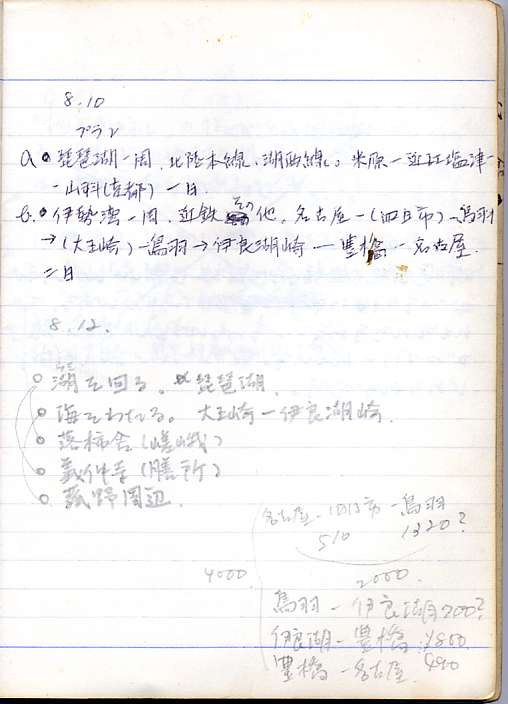 8.10
プラン
a. 琵琶湖一周、北陸本線、湖西線。米原－近江塩津－
－山科(京都) 一日
b. 伊勢湾一周、近鉄その他。名古屋－(四日市)－鳥羽
→(大王崎)－鳥羽→伊良湖崎－豊橋－名古屋.
二日
8.12.
湖を回る。琵琶湖.
海をわたる。大王崎－伊良湖崎.
落柿舎(嵯峨)
義仲寺(膳所)
周辺
名古屋－四日市－鳥羽
510 1320?
4000 2000.
鳥羽－伊良湖 700?
伊良湖－豊橋 ¥800
豊橋－名古屋. 490